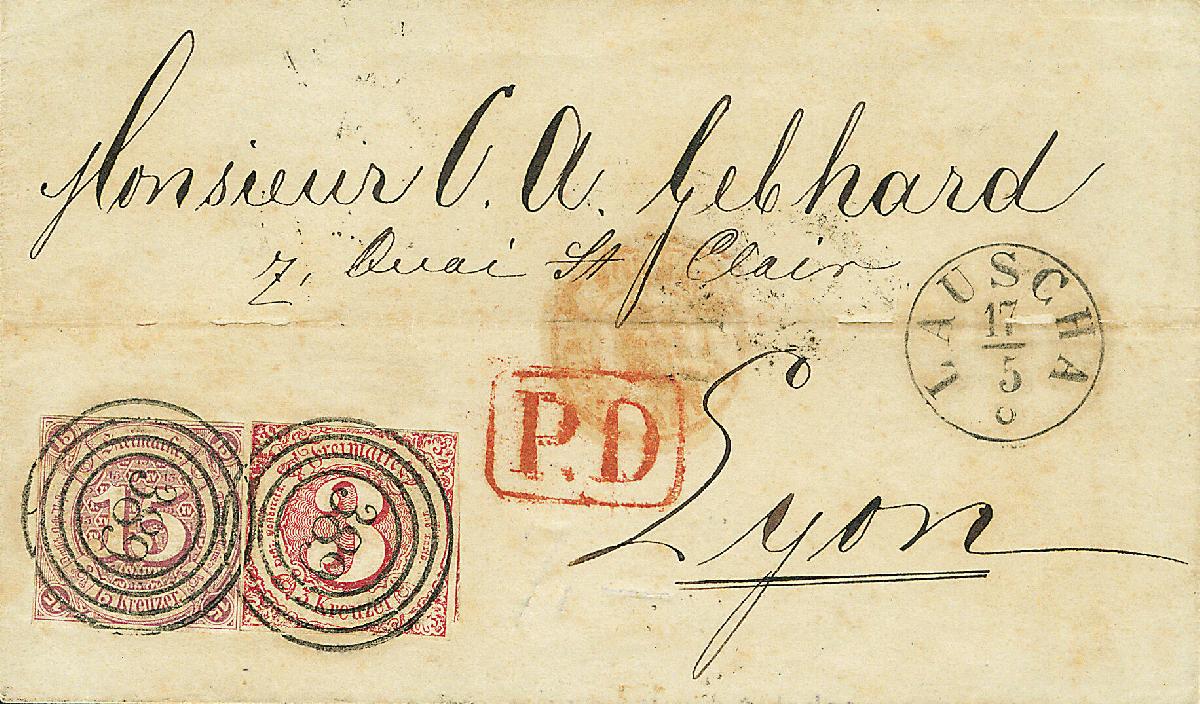 Monsieur C. A. Gebhard
7, Quai St Clair
LAUSCHA
17
5
P.D
Lyon
Freimarke
15
15 Kreuzer
Freimarke
3
3 Kreuzer